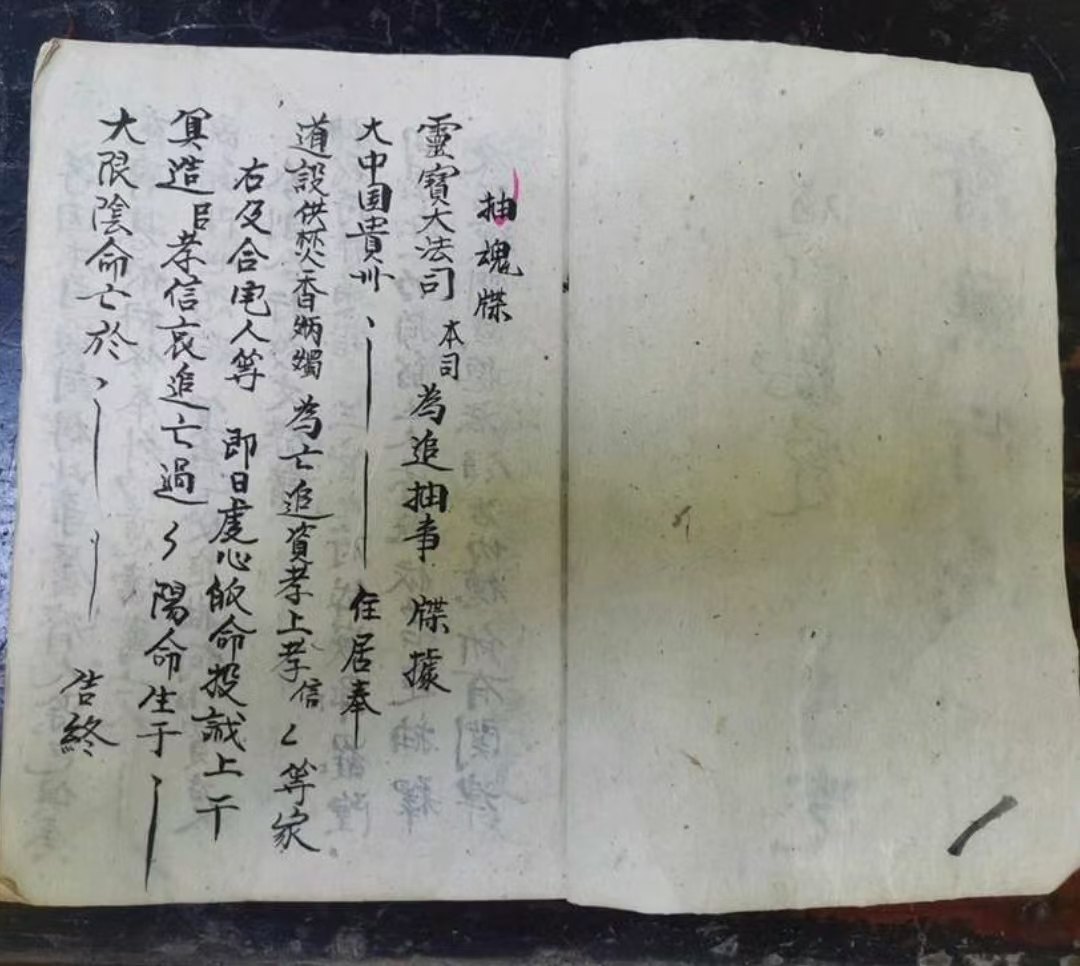 抽魂牒
靈寶大法司 本司 為追抽事 牒據
大中国貴州 住居奉
道設供焚香炳燭 為亡追資孝上孝信 等家
右及合宅人等 即日虔心皈命投誠上干
冥造 臣孝信哀追亡過 陽命生于
大限陰命亡於
告終